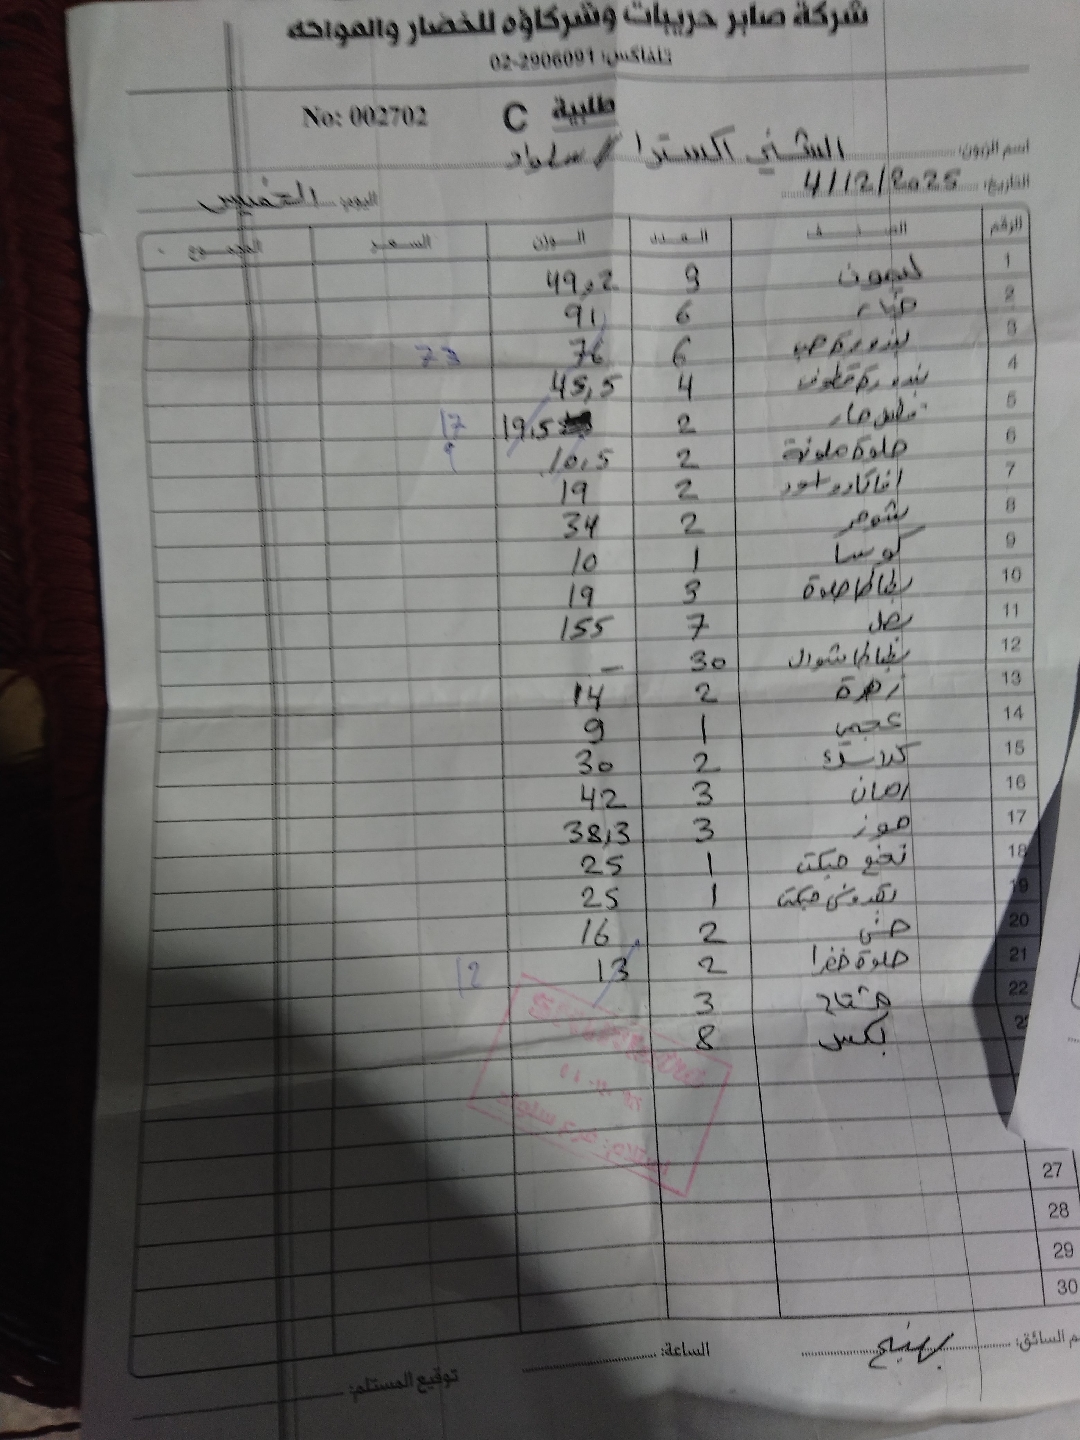 شركة صابر حريبات وشركاؤه للخضار والفواكه
تلفاكس: 02-2906091
No: 002702 C طلبية
اسم الزبون: الشني اكسترا / سلواد
التاريخ: 4/12/2025 اليوم: الخميس
الرقم الصنف العدد الوزن السعر المجموع
1 ليمون 9 49.2
2 خيار 6 91
3 بندورة حب 6 76 73
4 بندورة قطوف 4 45,5
5 فلفل حار 2 19.5 17
6 حلوة ملونة 2 10.5 9
7 افاكادو اسود 2 19
8 شومر 2 34
9 كوسا 1 10
10 بطاطا حلوة 3 19
11 بصل 7 155
12 بطاطا شوال 30 –
13 زهرة 2 14
14 عجمي 1 9
15 2 30
16 رمان 3 42
17 موز 3 38,3
18 نعنع 1 25
19 بقدونس 1 25
20 2 16
21 حلوة خضرا 2 13 12
22 مشتاح 3
23 بكس 8
27
28
29
30
السائق: بهيج الساعة: توقيع المستلم: